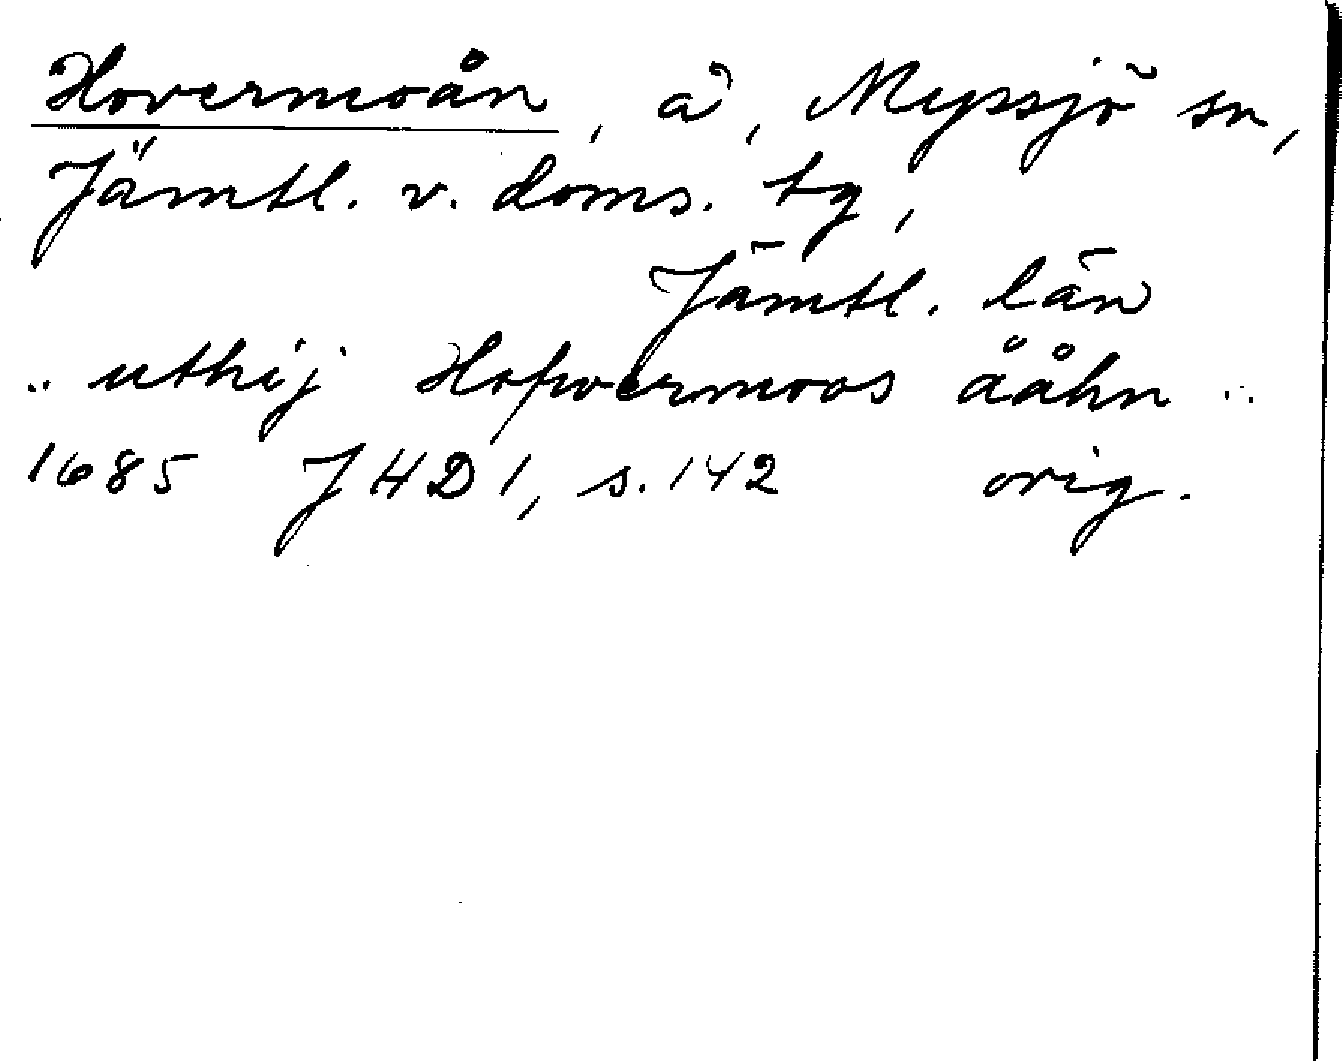 Hovermoån, å, Myssjö sn,
Jämtl. v. doms. tg,
Jämtl. län
.. uthij Hofwermoos ååhn ..
1685 JHD 1, s. 142 orig.